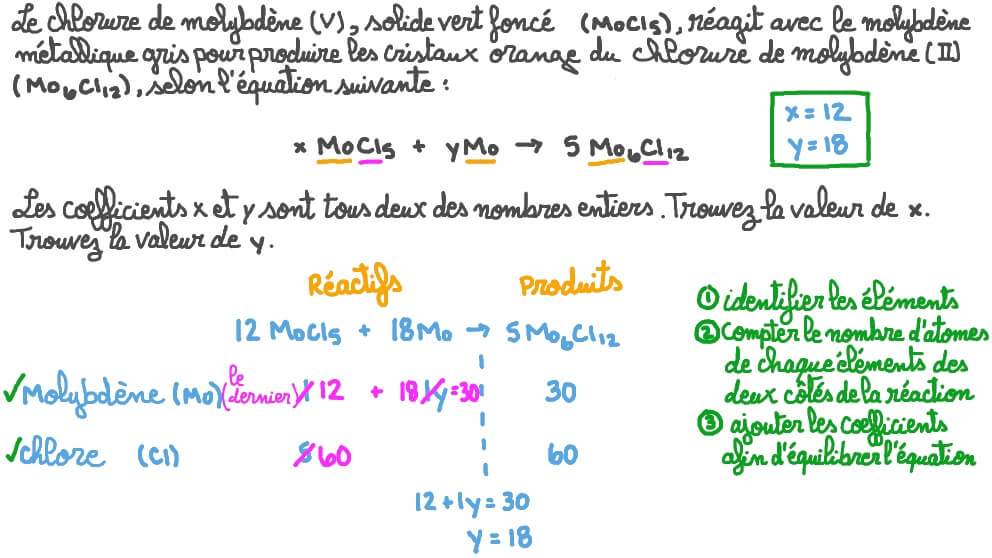 Le chlorure de molybdène (V), solide vert foncé (MoCl5), réagit avec le molybdène
métallique gris pour produire les cristaux orange du chlorure de molybdène (II)
(Mo6Cl12), selon l'équation suivante :
x = 12
y = 18
x MoCl5 + yMo → 5 Mo6Cl12
Les coefficients x et y sont tous deux des nombres entiers. Trouvez la valeur de x.
Trouvez la valeur de y.
Réactifs Produits
12 MoCl5 + 18Mo → 5 Mo6Cl12
✓Molybdène (Mo) (le dernier) 1 12 + 18 1y = 30 30
✓chlore (Cl) 5 60 60
12 + 1y = 30
y = 18
① identifier les éléments
② compter le nombre d'atomes
de chaque éléments des
deux côtés de la réaction
③ ajouter les coefficients
afin d'équilibrer l'équation